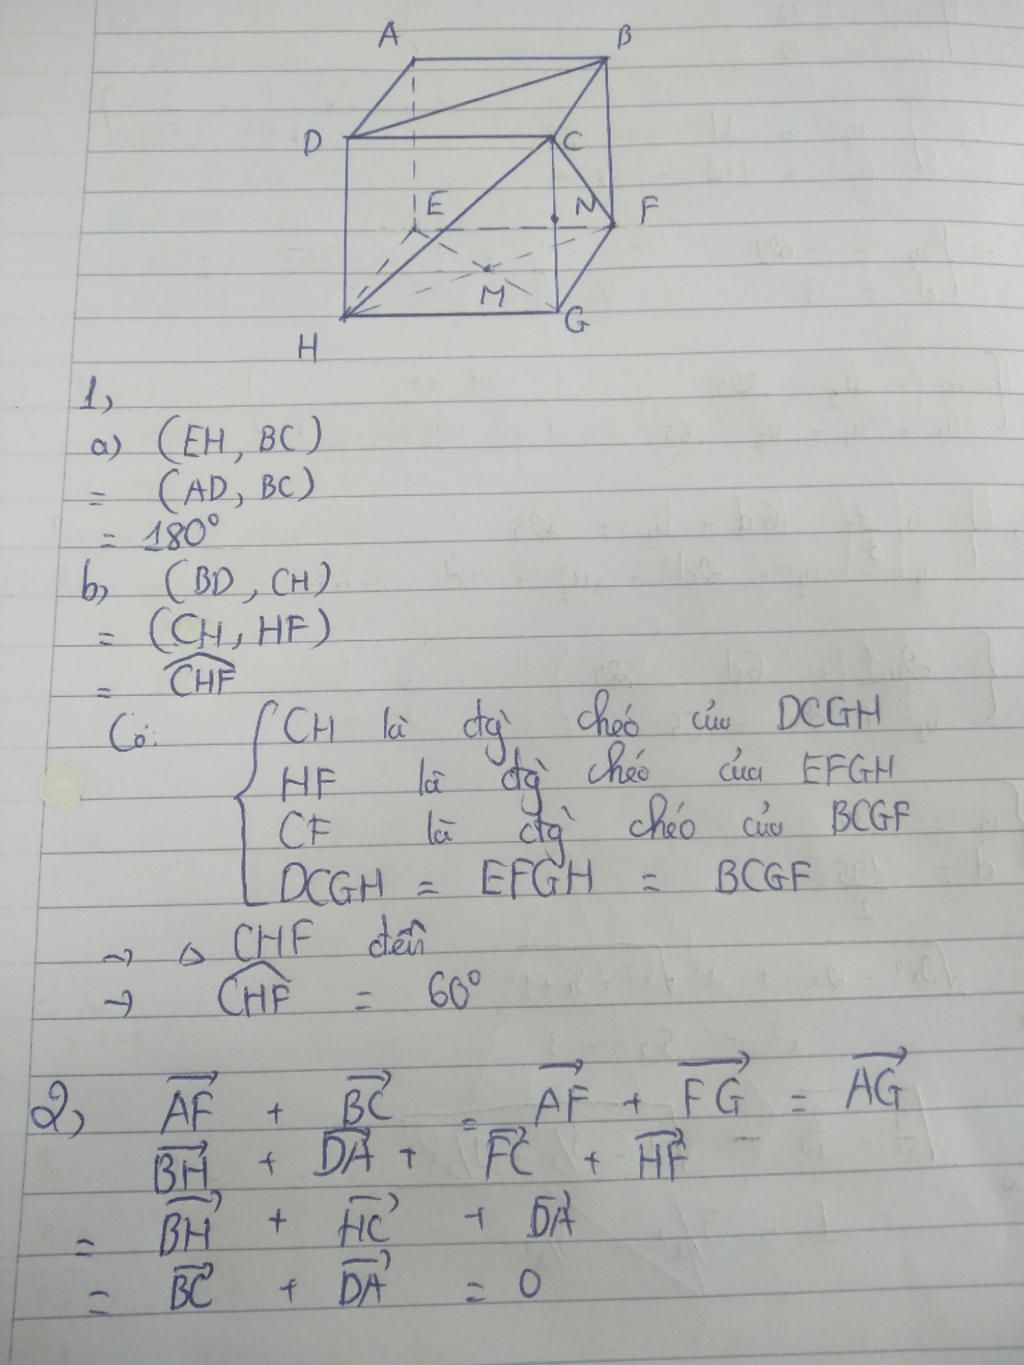 A B
D C
E N F
M
H G
1,
a) (EH, BC)
= (AD, BC)
= 180°
b, (BD, CH)
= (CH, HF)
= \widehat{CHF}
Có: CH là đg` chéo của DCGH
HF là đg` chéo của EFGH
CF là đg` chéo của BCGF
DCGH = EFGH = BCGF
→ △ CHF đều
→ \widehat{CHF} = 60°
2, \overrightarrow{AF} + \overrightarrow{BC} = \overrightarrow{AF} + \overrightarrow{FG} = \overrightarrow{AG}
\overrightarrow{BH} + \overrightarrow{DA} + \overrightarrow{FC} + \overrightarrow{HF}
= \overrightarrow{BH} + \overrightarrow{HC} + \overrightarrow{DA}
= \overrightarrow{BC} + \overrightarrow{DA} = 0